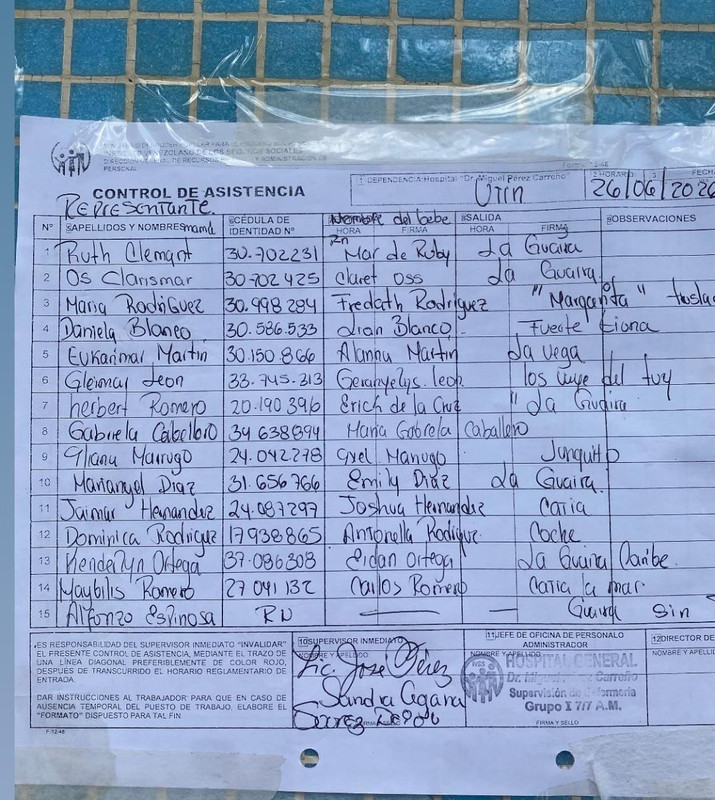 INSTITUTO VENEZOLANO DE LOS SEGUROS SOCIALES
DIRECCIÓN GENERAL DE RECURSOS HUMANOS Y ADMINISTRACIÓN DE
PERSONAL
CONTROL DE ASISTENCIA
1 DEPENDENCIA: Hospital "Dr. Miguel Pérez Carreño"
UTIN
2 HORARIO 3 FECHA
26/06/2026
Representante.
Nº 5APELLIDOS Y NOMBRES mamá 6CÉDULA DE IDENTIDAD Nº Nombre del bebe 8SALIDA 9OBSERVACIONES
HORA FIRMA HORA FIRMA
1 Ruth Clemant 30.702231 Mar de Ruby La Guaira
2 Os Clarismar 30702425 Claret Oss La Guaira
3 Maria Rodriguez 30.998284 Fredath Rodriguez "Margarita"
4 Daniela Blanco 30.586.533 Lian Blanco Fuerte tiona
5 Eukarimar Martin 30.150.866 Alanna Martin La vega
6 Gleimar Leon 33.745.313 Geranyelys. leon los del tuy
7 herbert Romero 20.190396 Erich de la Cruz "La Guaira
8 Gabriela Caballero 34638894 Maria Gabriela Caballero
9 24.042278 Junquito
10 Mariangel Diaz 31.656766 Emily Diaz La Guaira.
11 Jaimar Hernandez 24.087297 Joshua Hernandez Catia
12 Dominica Rodriguez 17938865 Antonella Rodrigue. Coche
13 Henderlyn Ortega 37.086308 Eidan Ortega La Guaira Caribe.
14 Maybilis Romero 27041132 Carlos Romero Catia la mar.
15 Alfonzo Espinosa RN — — Guaira Sin
ES RESPONSABILIDAD DEL SUPERVISOR INMEDIATO "INVALIDAR"
EL PRESENTE CONTROL DE ASISTENCIA, MEDIANTE EL TRAZO DE
UNA LÍNEA DIAGONAL PREFERIBLEMENTE DE COLOR ROJO,
DESPUES DE TRANSCURRIDO EL HORARIO REGLAMENTARIO DE
ENTRADA.
DAR INSTRUCCIONES AL TRABAJADOR PARA QUE EN CASO DE
AUSENCIA TEMPORAL DEL PUESTO DE TRABAJO, ELABORE EL
"FORMATO" DISPUESTO PARA TAL FIN
F-12-48
10SUPERVISOR INMEDIATO
NOMBRE Y APELLIDO
Lic. José Pérez
Sandra
11JEFE DE OFICINA DE PERSONAL O
ADMINISTRADOR
NOMBRE Y APELLIDO
IVSS
HOSPITAL GENERAL
Dr. Miguel Pérez Carreño
Supervisión de Enfermería
Grupo I 7/7 A.M.
FIRMA Y SELLO
12DIRECTOR DE
NOMBRE Y APELLI